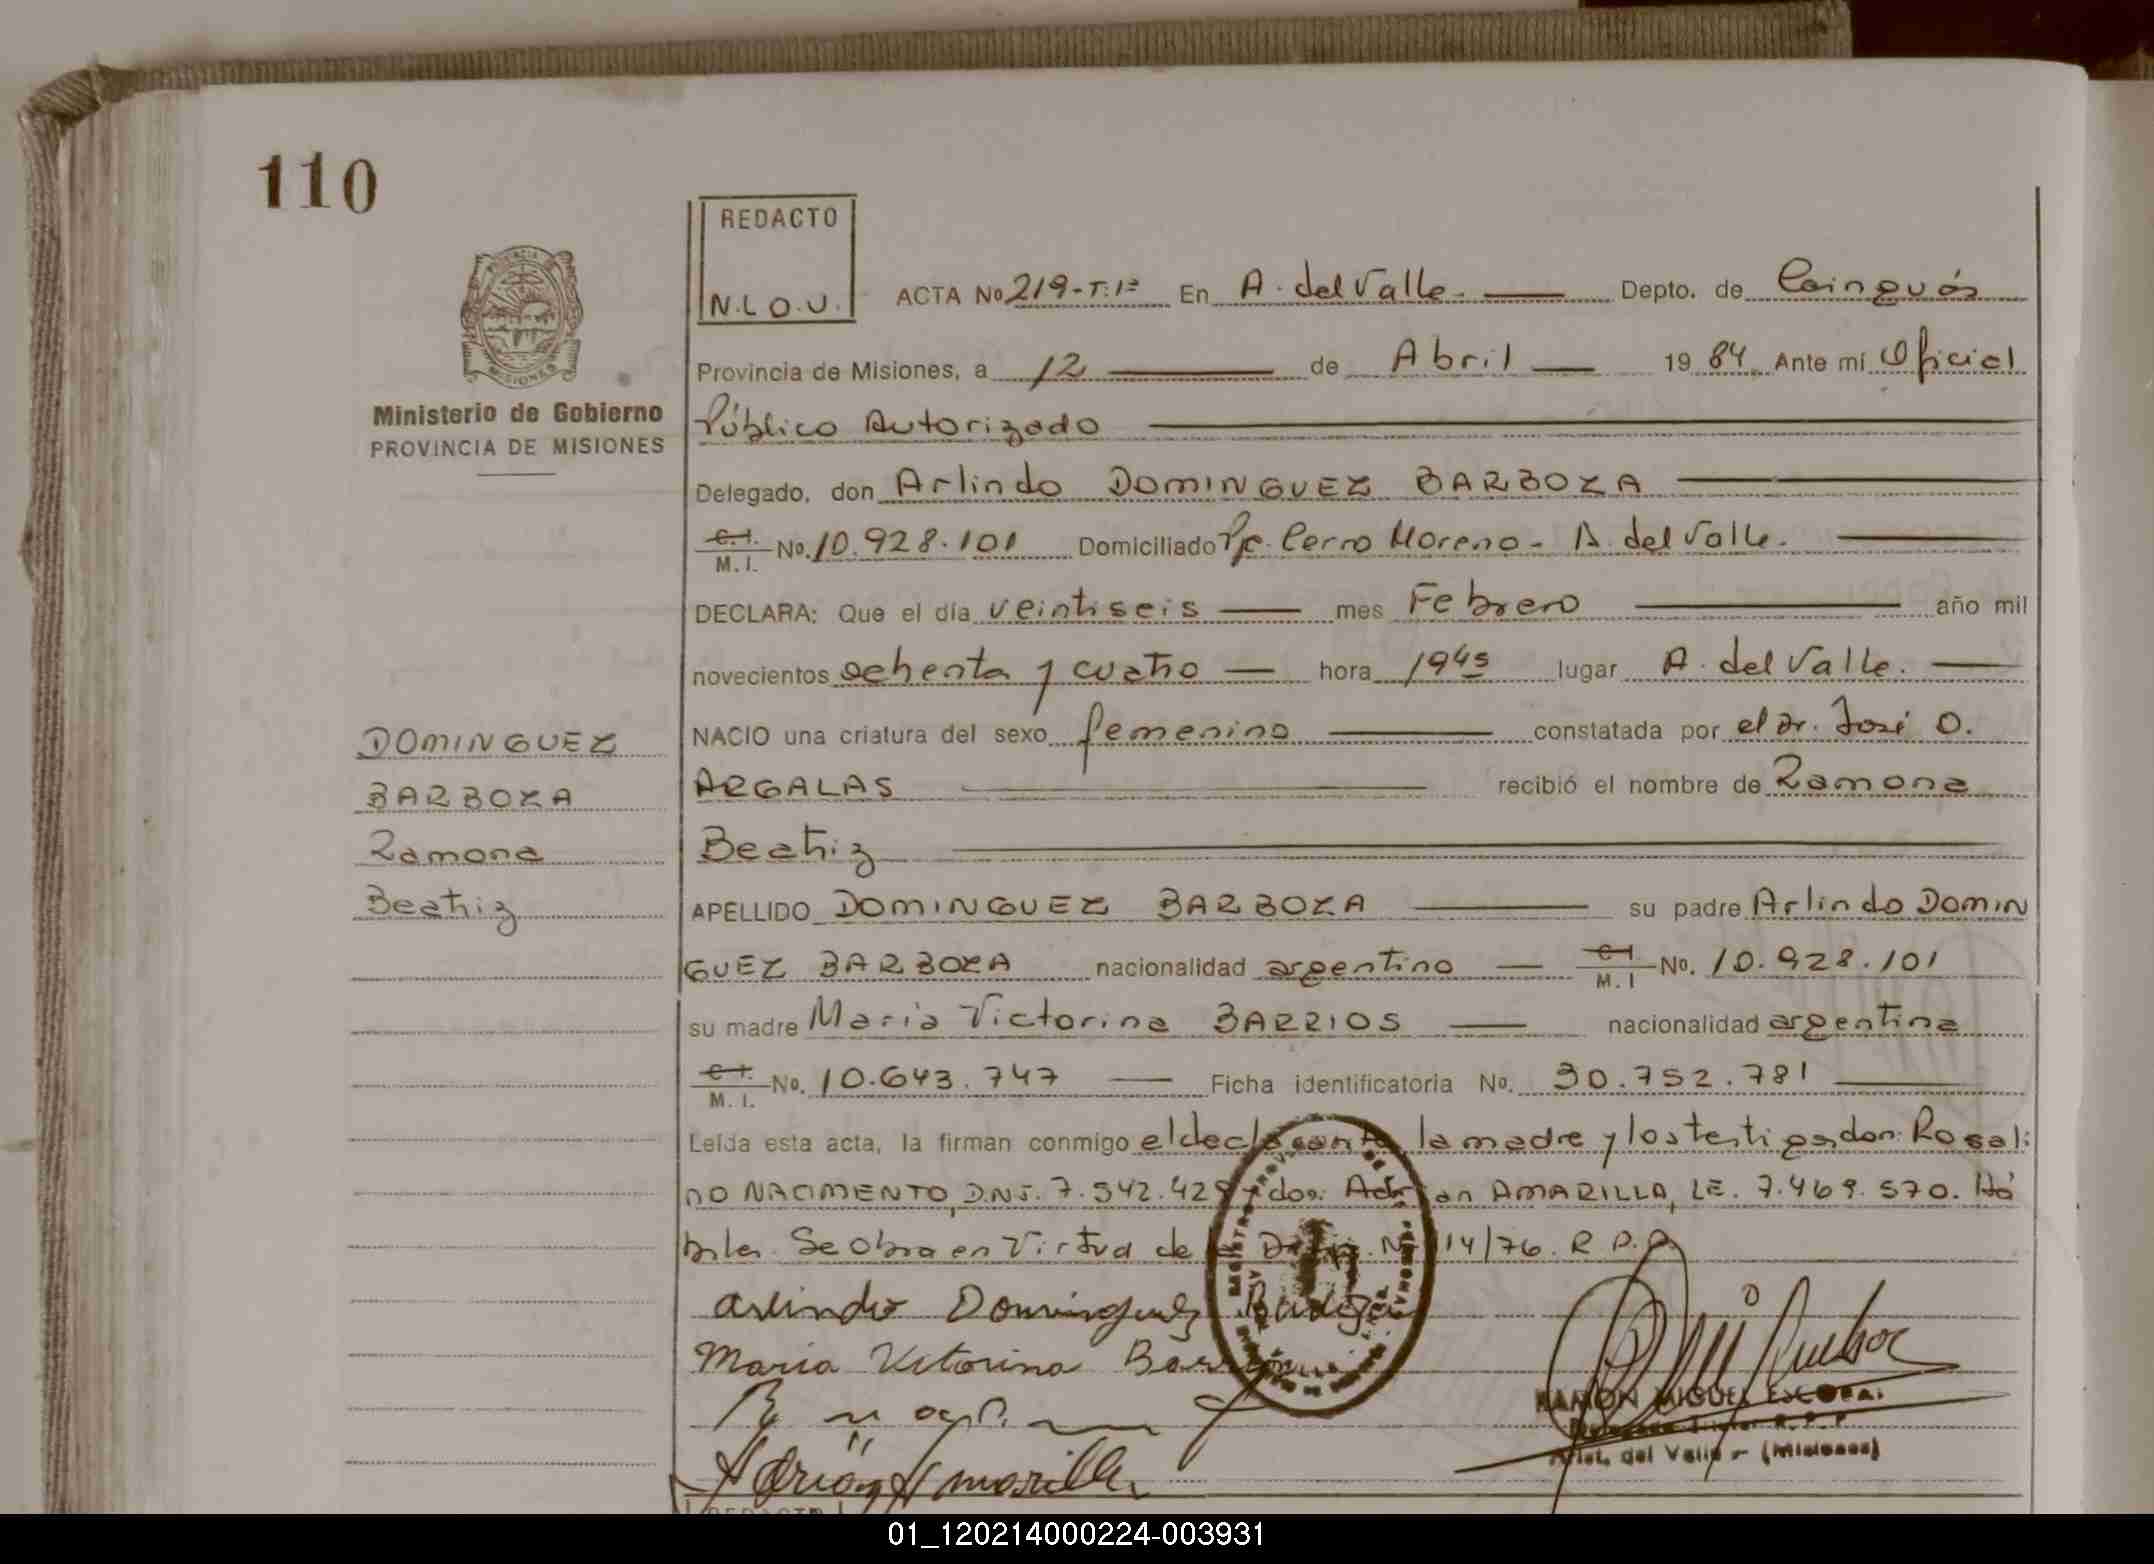 110
REDACTO
N.L O.U.
ACTA No 219-T:1º En A. del Valle. Depto. de Cainguás
Provincia de Misiones, a 12 de Abril 1984 Ante mí Oficial
Público Autorizado
Delegado, don Arlindo DOMINGUEZ BARBOZA
C.I. M.I. No. 10.928.101 Domiciliado Pje. Cerro Moreno - A. del Valle.
DECLARA: Que el día veintiseis mes Febrero año mil
novecientos ochenta y cuatro hora 19 45 lugar A. del Valle.
NACIO una criatura del sexo femenino constatada por el Dr. José O.
ARGALAS recibió el nombre de Ramona
Beatriz
APELLIDO DOMINGUEZ BARBOZA su padre Arlindo DOMIN
GUEZ BARBOZA nacionalidad argentino C.I. M.I No. 10.928.101
su madre Maria Victorina BARRIOS nacionalidad argentina
C.I. M.I. No. 10.643.747 Ficha identificatoria No. 30.752.781
Leída esta acta, la firman conmigo el declarante la madre y los testigos don: Rosali
no NACIMENTO, D.N.I. 7.542.429 y don: Adrian AMARILLA, LE. 7.469.570. Há
biles. Se obra en Virtud de la 114/76. R.P.P.
Arlindo Dominguez
Maria Vitorina Barrios
Adrián Amarilla
RAMON MIGUEL ESCOBAR
R. P. P.
Arist. del Valle - (Misiones)
PROVINCIA DE
MISIONES
Ministerio de Gobierno
PROVINCIA DE MISIONES
DOMINGUEZ
BARBOZA
Ramona
Beatriz
REDACTO
01_120214000224-003931